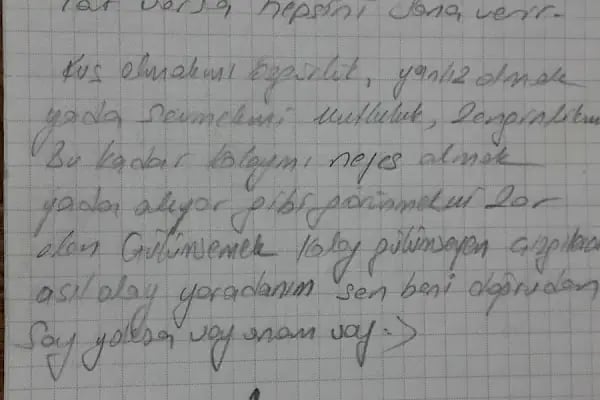 varsa hepsini sana verir.
Kuş olmakmı özgürlük, yanlız olmak
yada sevmekmi mutluluk, Zenginlikmi
Bu kadar kolaymı nefes almak
yada alıyor gibi görünmekmi Zor
olan Gülümsemek kolay gülümseyen
asıl olay yaradanım sen beni doğrudan
Say yoksa vay anam vay :>